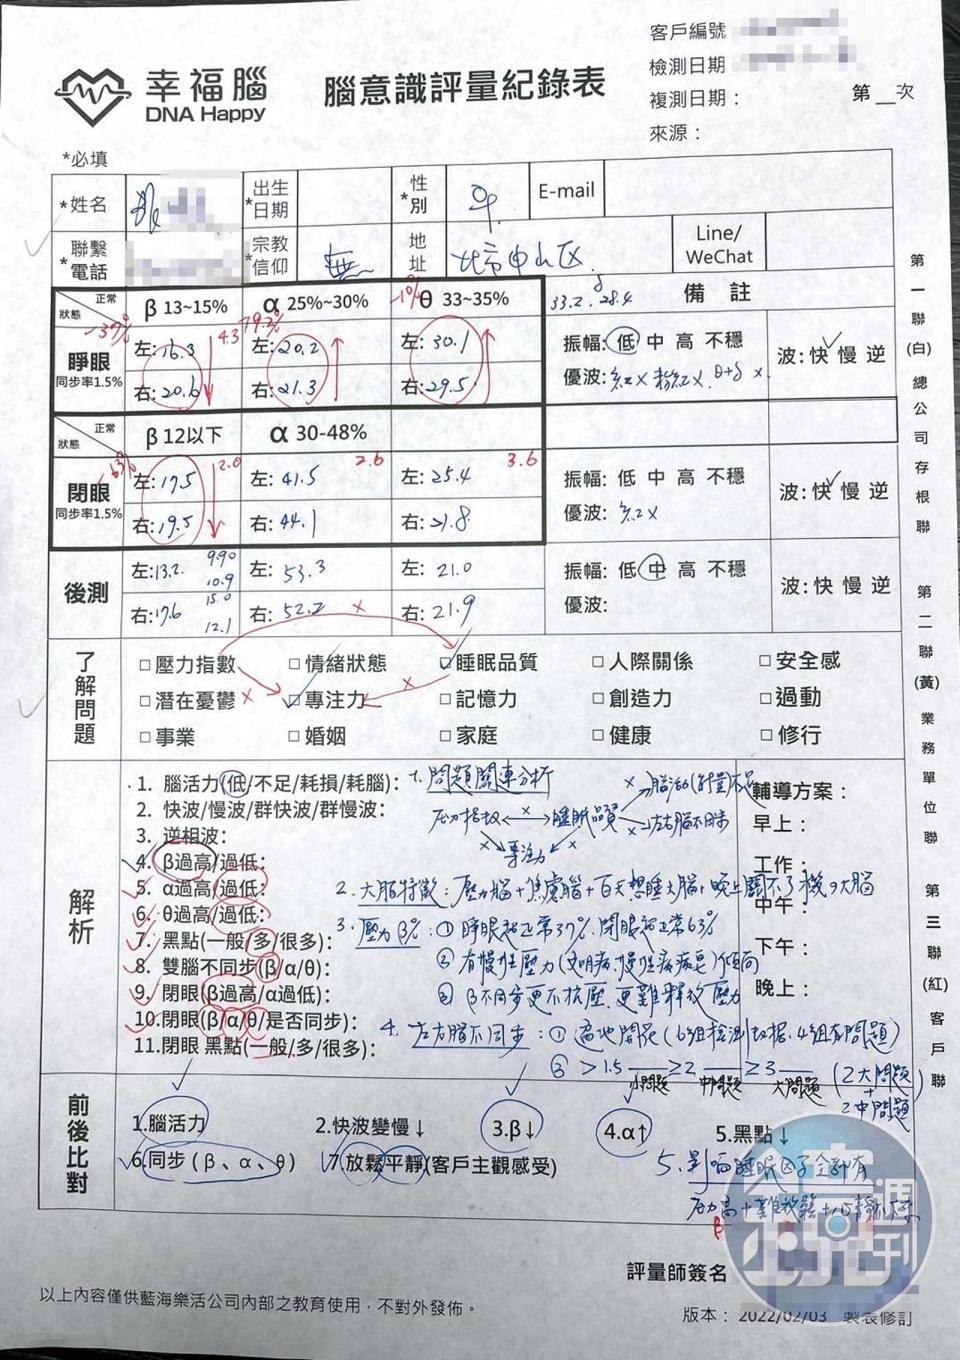 客戶編號
檢測日期
複測日期：
來源：
第__次
幸福腦
DNA Happy
腦意識評量紀錄表
*必填
*姓名
*出生日期
*性別
E-mail
*聯繫電話
*宗教信仰 無
地址 北市中山区
Line/WeChat
狀態 正常
β 13~15%
α 25%~30%
θ 33~35%
-1%
33.2 28.4
δ
備 註
-37%
4.3
79.2%
睜眼
同步率1.5%
左:16.3
左:20.2
左:30.1
右:20.6
右:21.3
右:29.5
振幅:低 中 高 不穩
優波:
波:快 慢 逆
狀態 正常
β 12以下
α 30-48%
63%
2.0
2.6
3.6
閉眼
同步率1.5%
左:17.5
左:41.5
左:25.4
右:19.5
右:44.1
右:21.8
振幅: 低 中 高 不穩
優波:
波:快 慢 逆
後測
左:13.2
9.90
10.9
左: 53.3
左: 21.0
右:17.6
15.0
12.1
右: 52.2
右: 21.9
振幅: 低 中 高 不穩
優波:
波:快 慢 逆
了解問題
□ 壓力指數 □ 情緒狀態 □ 睡眠品質 □ 人際關係 □ 安全感
□ 潛在憂鬱 □ 專注力 □ 記憶力 □ 創造力 □ 過動
□ 事業 □ 婚姻 □ 家庭 □ 健康 □ 修行
解析
1. 腦活力(低/不足/耗損/耗腦)：
2. 快波/慢波/群快波/群慢波：
3. 逆相波：
4. β過高/過低：
5. α過高/過低：
6. θ過高/過低：
7. 黑點(一般/多/很多)：
8. 雙腦不同步(β/α/θ)：
9. 閉眼(β過高/α過低)：
10.閉眼(β/α/θ/是否同步)：
11.閉眼 黑點(一般/多/很多)：
1. 問題關連分析
壓力指数 睡眠品質
專注力
左右腦不同步
2. 大腦特徵：壓力腦+焦慮腦+白天想睡大腦，晚上關不了機の大腦
3. 壓力β%：① 睜眼超正常37%、閉眼超正常63%
② 有慢性壓力
③ β不同步更不抗壓、更難釋放壓力
4. 左右腦不同步：
>1.5 小問題
≥2 中問題
≥3 大問題
(2大問題+2中問題)
輔導方案：
早上：
工作：
中午：
下午：
晚上：
前後比對
1.腦活力 2.快波變慢↓ 3.β↓ 4.α↑ 5.黑點↓
6.同步 (β、α、θ) 7.放鬆平靜(客戶主觀感受)
5. 影响睡眠因子全部有
β
評量師簽名
以上內容僅供藍海樂活公司內部之教育使用，不對外發佈。
版本： 2022/02/03 製表修訂
第一聯(白) 總公司存根聯 第二聯(黃) 業務單位聯 第三聯(紅) 客戶聯
週刊